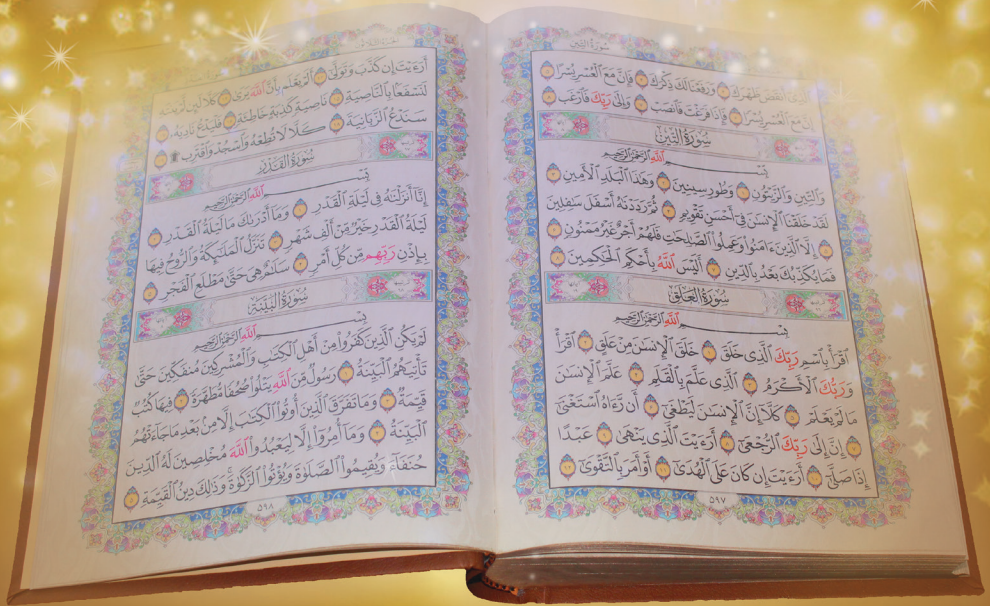 سُورَةُ التِّينِ
ٱلَّذِىٓ أَنقَضَ ظَهْرَكَ ٣ وَرَفَعْنَا لَكَ ذِكْرَكَ ٤ فَإِنَّ مَعَ ٱلْعُسْرِ يُسْرًا ٥
إِنَّ مَعَ ٱلْعُسْرِ يُسْرًا ٦ فَإِذَا فَرَغْتَ فَٱنصَبْ ٧ وَإِلَىٰ رَبِّكَ فَٱرْغَب ٨
سُورَةُ التِّينِ
بِسْمِ ٱللَّهِ ٱلرَّحْمَٰنِ ٱلرَّحِيمِ
وَٱلتِّينِ وَٱلزَّيْتُونِ ١ وَطُورِ سِينِينَ ٢ وَهَٰذَا ٱلْبَلَدِ ٱلْأَمِينِ ٣
لَقَدْ خَلَقْنَا ٱلْإِنسَٰنَ فِىٓ أَحْسَنِ تَقْوِيمٍ ٤ ثُمَّ رَدَدْنَٰهُ أَسْفَلَ سَٰفِلِينَ
٥ إِلَّا ٱلَّذِينَ ءَامَنُوا۟ وَعَمِلُوا۟ ٱلصَّٰلِحَٰتِ فَلَهُمْ أَجْرٌ غَيْرُ مَمْنُونٍ ٦
فَمَا يُكَذِّبُكَ بَعْدُ بِٱلدِّينِ ٧ أَلَيْسَ ٱللَّهُ بِأَحْكَمِ ٱلْحَٰكِمِينَ ٨
سُورَةُ العَلَقِ
بِسْمِ ٱللَّهِ ٱلرَّحْمَٰنِ ٱلرَّحِيمِ
ٱقْرَأْ بِٱسْمِ رَبِّكَ ٱلَّذِى خَلَقَ ١ خَلَقَ ٱلْإِنسَٰنَ مِنْ عَلَقٍ ٢ ٱقْرَأْ
وَرَبُّكَ ٱلْأَكْرَمُ ٣ ٱلَّذِى عَلَّمَ بِٱلْقَلَمِ ٤ عَلَّمَ ٱلْإِنسَٰنَ
مَا لَمْ يَعْلَمْ ٥ كَلَّآ إِنَّ ٱلْإِنسَٰنَ لَيَطْغَىٰٓ ٦ أَن رَّءَاهُ ٱسْتَغْنَىٰٓ
٧ إِنَّ إِلَىٰ رَبِّكَ ٱلرُّجْعَىٰٓ ٨ أَرَءَيْتَ ٱلَّذِى يَنْهَىٰ ٩ عَبْدًا
إِذَا صَلَّىٰٓ ١٠ أَرَءَيْتَ إِن كَانَ عَلَى ٱلْهُدَىٰٓ ١١ أَوْ أَمَرَ بِٱلتَّقْوَىٰٓ ١٢
٥٩٧
أَرَءَيْتَ إِن كَذَّبَ وَتَوَلَّىٰٓ ١٣ أَلَمْ يَعْلَم بِأَنَّ ٱللَّهَ يَرَىٰ ١٤ كَلَّا لَئِن لَّمْ يَنتَهِ
لَنَسْفَعًۢا بِٱلنَّاصِيَةِ ١٥ نَاصِيَةٍ كَٰذِبَةٍ خَاطِئَةٍ ١٦ فَلْيَدْعُ نَادِيَهُۥ ١٧
سَنَدْعُ ٱلزَّبَانِيَةَ ١٨ كَلَّا لَا تُطِعْهُ وَٱسْجُدْ وَٱقْتَرِب ۩ ١٩
سُورَةُ القَدْرِ
بِسْمِ ٱللَّهِ ٱلرَّحْمَٰنِ ٱلرَّحِيمِ
إِنَّآ أَنزَلْنَٰهُ فِى لَيْلَةِ ٱلْقَدْرِ ١ وَمَآ أَدْرَىٰكَ مَا لَيْلَةُ ٱلْقَدْرِ ٢
لَيْلَةُ ٱلْقَدْرِ خَيْرٌ مِّنْ أَلْفِ شَهْرٍ ٣ تَنَزَّلُ ٱلْمَلَٰٓئِكَةُ وَٱلرُّوحُ فِيهَا
بِإِذْنِ رَبِّهِم مِّن كُلِّ أَمْرٍ ٤ سَلَٰمٌ هِىَ حَتَّىٰ مَطْلَعِ ٱلْفَجْرِ ٥
سُورَةُ البَيِّنَةِ
بِسْمِ ٱللَّهِ ٱلرَّحْمَٰنِ ٱلرَّحِيمِ
لَمْ يَكُنِ ٱلَّذِينَ كَفَرُوا۟ مِنْ أَهْلِ ٱلْكِتَٰبِ وَٱلْمُشْرِكِينَ مُنفَكِّينَ حَتَّىٰ
تَأْتِيَهُمُ ٱلْبَيِّنَةُ ١ رَسُولٌ مِّنَ ٱللَّهِ يَتْلُوا۟ صُحُفًا مُّطَهَّرَةً ٢ فِيهَا كُتُبٌ
قَيِّمَةٌ ٣ وَمَا تَفَرَّقَ ٱلَّذِينَ أُوتُوا۟ ٱلْكِتَٰبَ إِلَّا مِنۢ بَعْدِ مَا جَآءَتْهُمُ
ٱلْبَيِّنَةُ ٤ وَمَآ أُمِرُوٓا۟ إِلَّا لِيَعْبُدُوا۟ ٱللَّهَ مُخْلِصِينَ لَهُ ٱلدِّينَ
حُنَفَآءَ وَيُقِيمُوا۟ ٱلصَّلَوٰةَ وَيُؤْتُوا۟ ٱلزَّكَوٰةَ ۚ وَذَٰلِكَ دِينُ ٱلْقَيِّمَةِ ٥
٥٩٨